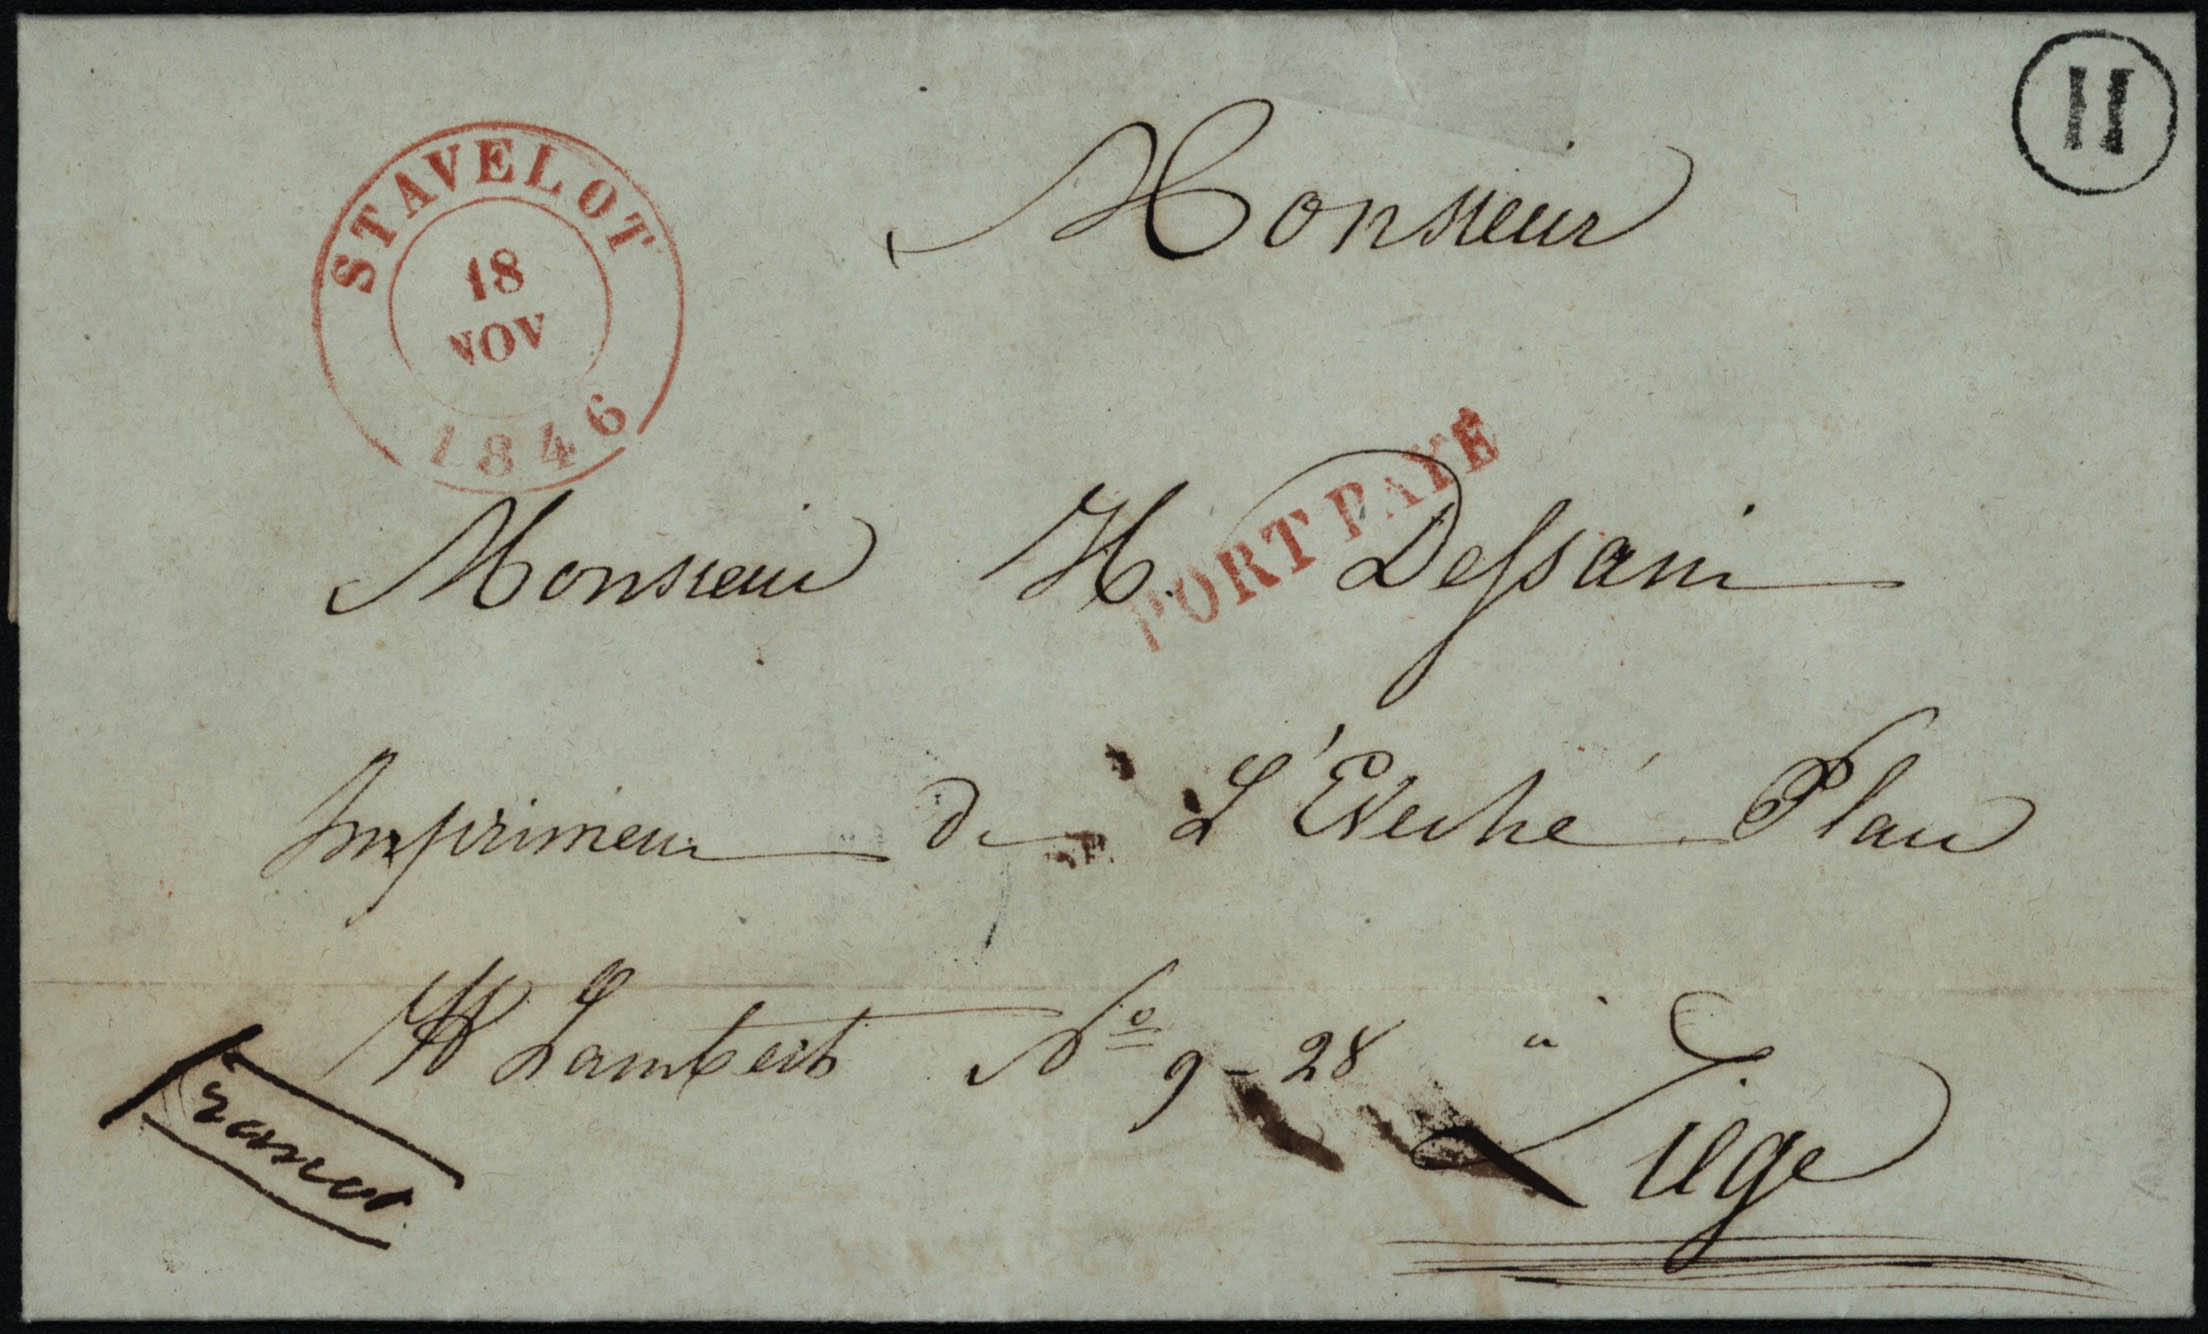 H
STAVELOT
18
NOV
1846
Monsieur
PORT PAYE
Monsieur H. Dessain
Imprimeur de L'Evêché Place
St Lambert No 9-28 à
Liège
franco